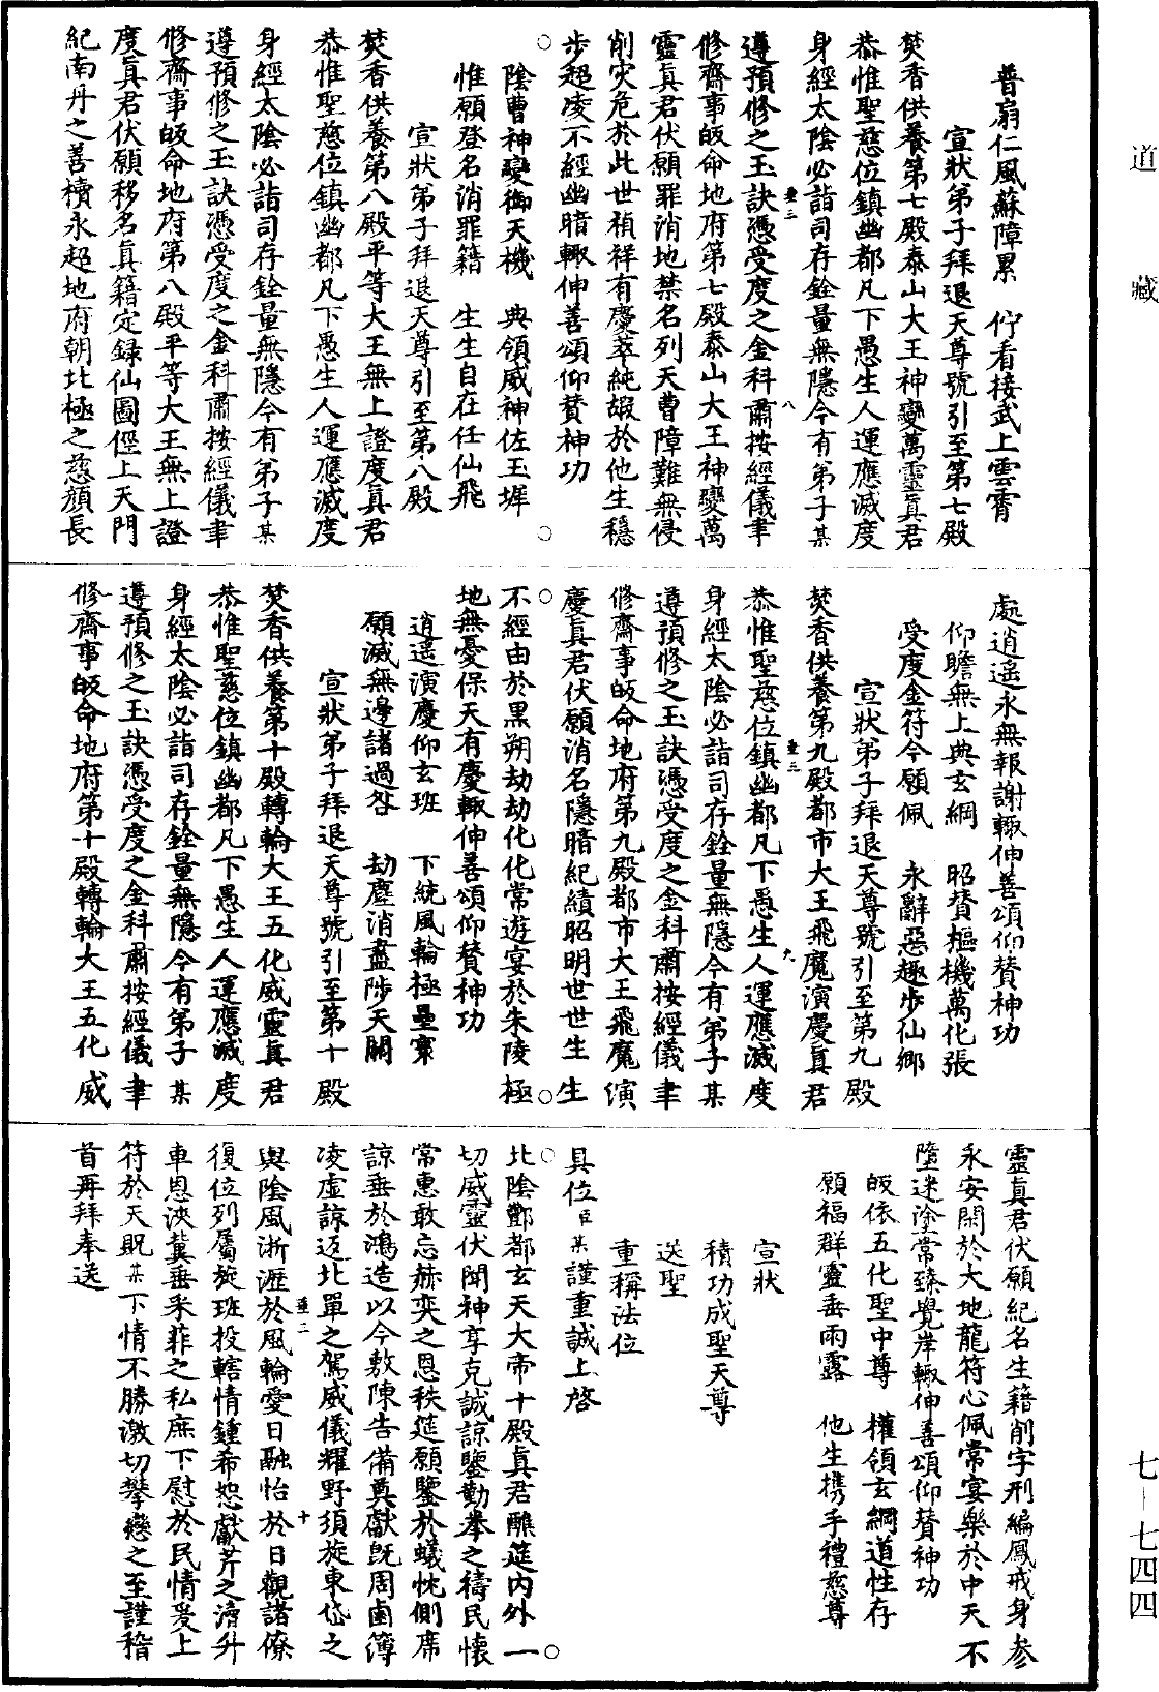 道藏
普扇仁風蘇障累　佇看接武上雲霄
宣狀弟子拜退天尊號引至第七殿
焚香供養第七殿泰山大王神變萬靈真君
恭惟聖慈位鎮幽都凡下愚生人運應滅度
身經太陰必詣司存銓量無隱今有弟子某
遵預修之玉訣憑受度之金科肅按經儀聿
修齋事皈命地府第七殿泰山大王神變萬
靈真君伏願罪消地禁名列天曹障難無侵
削灾危於此世禎祥有慶萃純嘏於他生穩
步超凌不經幽暗輙伸善頌仰賛神功
陰曹神變御天機　典領威神佐玉墀
惟願登名消罪籍　生生自在任仙飛
宣狀弟子拜退天尊引至第八殿
焚香供養第八殿平等大王無上證度真君
恭惟聖慈位鎮幽都凡下愚生人運應滅度
身經太陰必詣司存銓量無隱今有弟子某
遵預修之玉訣憑受度之金科肅按經儀聿
修齋事皈命地府第八殿平等大王無上證
度真君伏願移名真籍定録仙圖徑上天門
紀南丹之善積永超地府朝北極之慈顏長
處逍遙永無報謝輙伸善頌仰賛神功
仰瞻無上典玄綱　昭賛樞機萬化張
受度金符今願佩　永辭惡趣步仙鄉
宣狀弟子拜退天尊號引至第九殿
焚香供養第九殿都市大王飛魔演慶真君
恭惟聖慈位鎮幽都凡下愚生人運應滅度
身經太陰必詣司存銓量無隱今有弟子某
遵預修之玉訣憑受度之金科肅按經儀聿
修齋事皈命地府第九殿都市大王飛魔演
慶真君伏願消名隱暗紀績昭明世世生生
不經由於黑朔劫劫化化常遊宴於朱陵極
地無憂保天有慶輙伸善頌仰賛神功
逍遥演慶仰玄班　下統風輪極壘寰
願滅無邊諸過咎　劫塵消盡陟天關
宣狀弟子拜退天尊號引至第十殿
焚香供養第十殿轉輪大王五化威靈真君
恭惟聖慈位鎮幽都凡下愚生人運應滅度
身經太陰必詣司存銓量無隱今有弟子某
遵預修之玉訣憑受度之金科肅按經儀聿
修齋事皈命地府第十殿轉輪大王五化威
靈真君伏願紀名生籍削字刑編鳳戒身参
永安閑於大地龍符心佩常宴樂於中天不
墮迷塗常臻覺岸輙伸善頌仰賛神功
皈依五化聖中尊　權領玄綱道性存
願福群靈垂雨露　他生携手禮慈尊
宣狀
積功成聖天尊
送聖
重稱法位
具位臣某謹重誠上啓
北陰酆都玄天大帝十殿真君醮筵内外一
切威靈伏聞神享克誠諒鑒勤拳之禱民懷
常惠敢忘赫奕之恩秩筵願鑒於蟻忱側席
諒垂於鴻造以今敷陳告備奠獻既周鹵簿
凌虛諒迓北單之駕威儀耀野須旋東岱之
輿陰風淅瀝於風輪愛日融怡於日觀諸僚
復位列屬旋班投轄情鍾希恕獻芹之瀆升
車恩浹冀垂采菲之私庶下慰於民情爰上
符於天貺某下情不勝激切攀戀之至謹稽
首再拜奉送
七–七四四